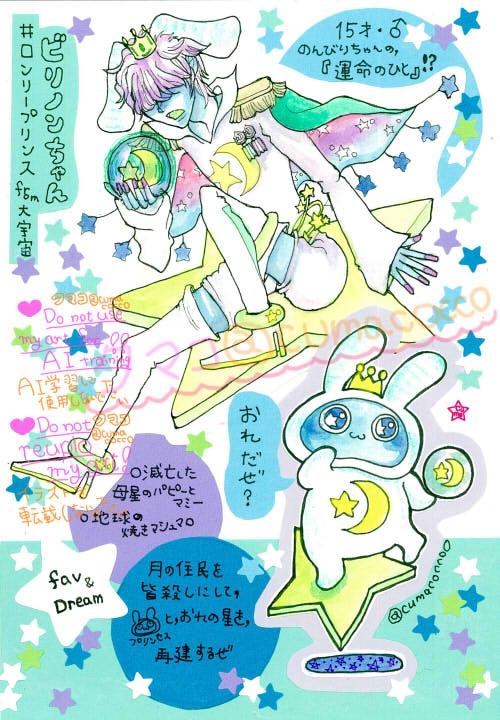 15才・♂
のんびりちゃんの,
『運命のひと』!?
ビリノンちゃん
#ロンリープリンス
fʀm 大宇宙
クマココ@cuma
cocco
Do not use
my art for
AI training
AI学習に
使用しないでください
クマココ@cuma
cocco
Do not
reupload
my art
イラスト
転載しないで
クマココ@cumacocco
おれだぜ?
○滅亡した
母星のパピーと
マミー
○地球の
焼きマシュマロ
fav &
Dream
月の住民を
皆殺しにして,
プリンセス
と,おれの星を,
再建するぜ
@cumacocco